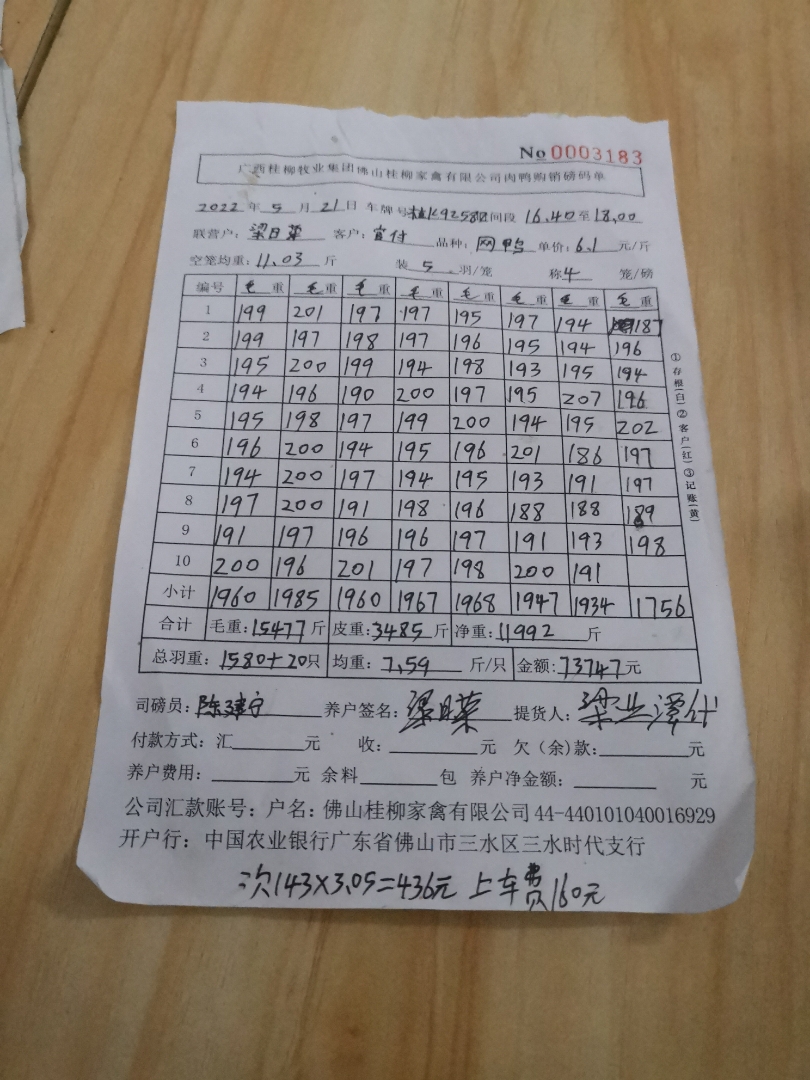 No 0003183
广西桂柳牧业集团佛山桂柳家禽有限公司肉鸭购销磅码单
2022 年 5 月 21 日 车牌号 K9258 时间段 16.40 至 18.00
联营户: 梁日葉 客户: 宜付 品种: 网鸭 单价: 6.1 元/斤
空笼均重: 11.03 斤 装 5 羽/笼 称 4 笼/磅
编号 毛重 毛重 毛重 毛重 毛重 毛重 毛重 毛重
1 199 201 197 197 195 197 194 187
2 199 197 198 197 196 195 194 196
3 195 200 199 194 198 193 195 194
4 194 196 190 200 197 195 207 196
5 195 198 197 199 200 194 195 202
6 196 200 194 195 196 201 186 197
7 194 200 197 194 195 193 191 197
8 197 200 191 198 196 188 188 189
9 191 197 196 196 197 191 193 198
10 200 196 201 197 198 200 191
小计 1960 1985 1960 1967 1968 1947 1934 1756
合计 毛重: 15477 斤 皮重: 3485 斤 净重: 11992 斤
总羽重: 1580+20 只 均重: 7.59 斤/只 金额: 73747 元
司磅员: 陈建宁 养户签名: 提货人:
付款方式: 汇 元 收: 元 欠(余)款: 元
养户费用: 元 余料 包 养户净金额: 元
公司汇款账号: 户名: 佛山桂柳家禽有限公司 44-440101040016929
开户行: 中国农业银行广东省佛山市三水区三水时代支行
次143×3.05=436元 上车费160元
①存根(白)②客户(红)③记账(黄)